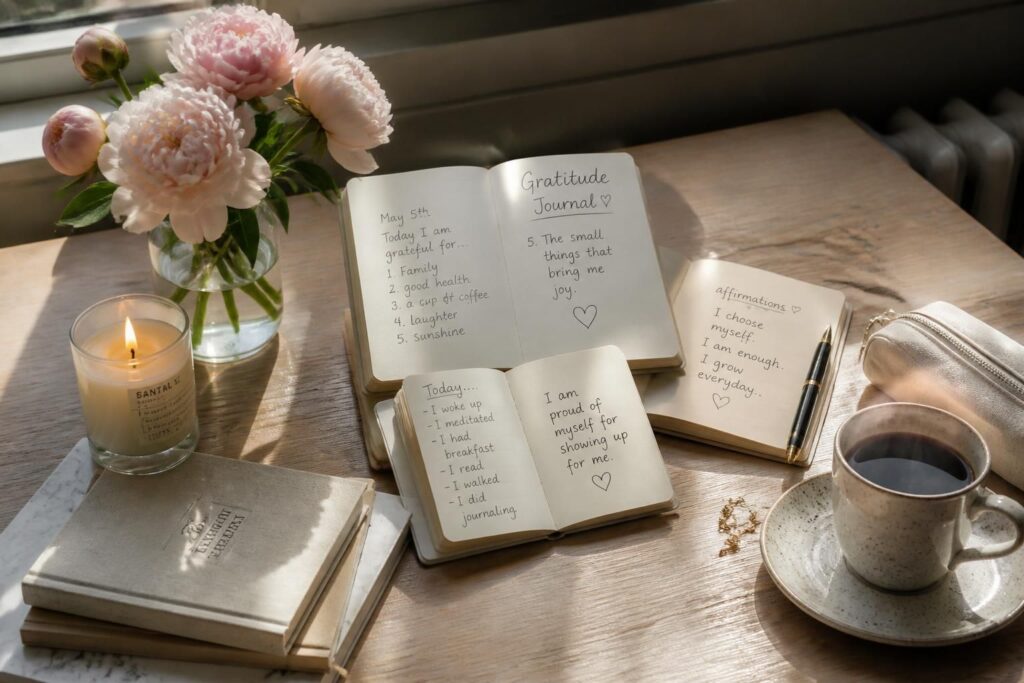 May 5th
Today I am
grateful for...
1. Family
2. good health
3. a cup of coffee
4. laughter
5. sunshine
Gratitude
Journal ♡
5. The small
things that
bring me
joy.
♡
affirmations ♡
I choose
myself.
I am enough.
I grow
everyday..
♡
Today....
- I woke up
- I meditated
- I had
breakfast
- I read
- I walked
- I did
journaling
I am
proud of
myself for
showing up
for me.
♡
SANTAL